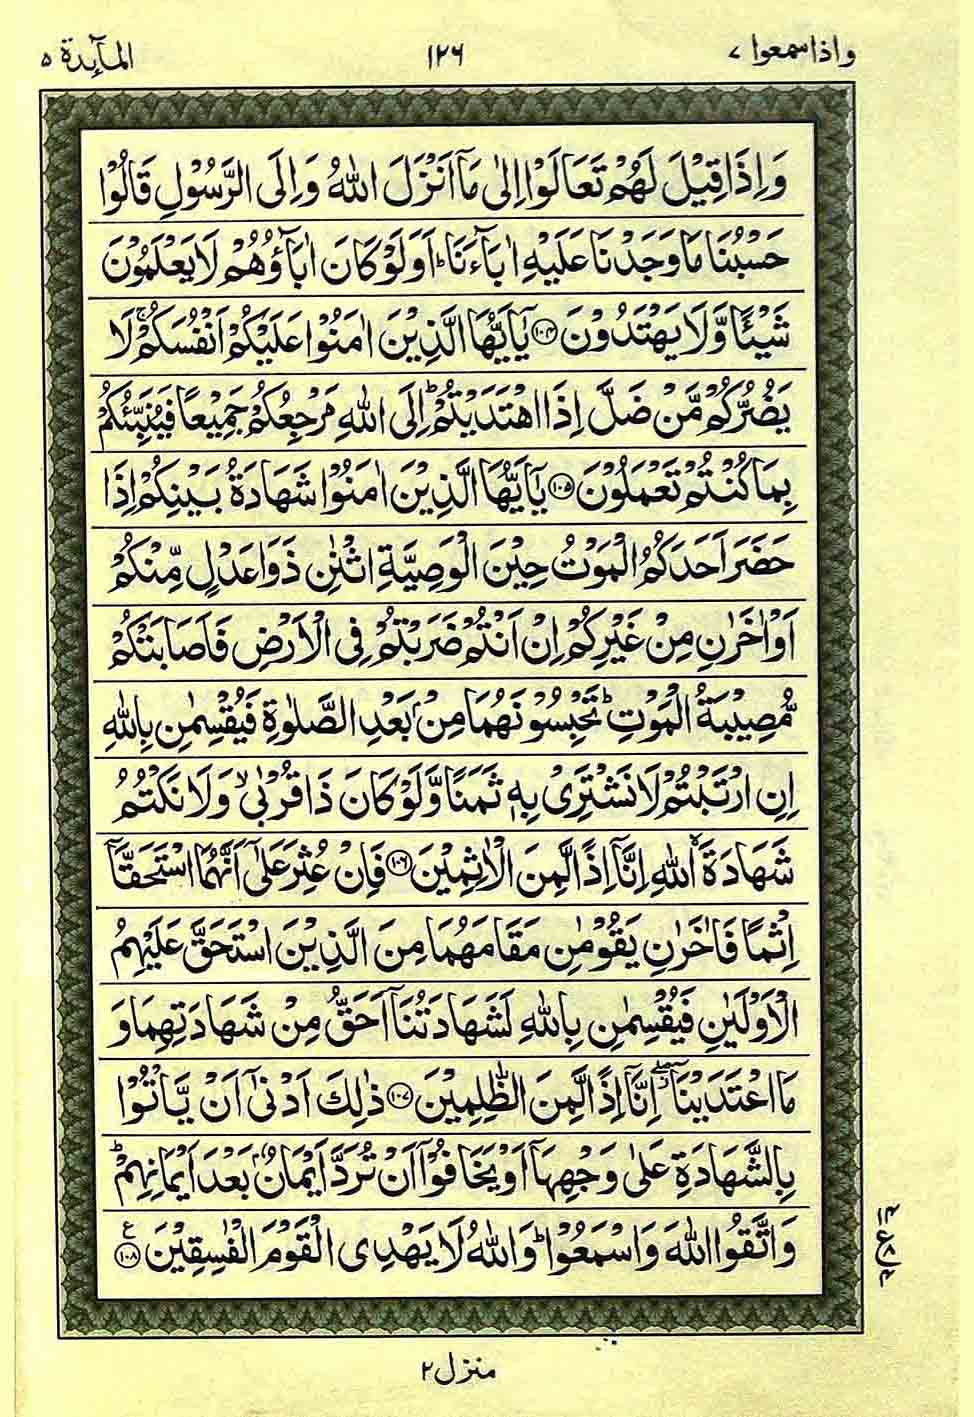 واذاسمعوا ٧
١٢٦
المآئدة ٥
وَاِذَا قِيْلَ لَهُمْ تَعَالَوْا اِلٰى مَاۤ اَنْزَلَ اللّٰهُ وَاِلَى الرَّسُوْلِ قَالُوْا
حَسْبُنَا مَا وَجَدْنَا عَلَيْهِ اٰبَآءَنَا ؕ اَوَلَوْ كَانَ اٰبَآؤُهُمْ لَا يَعْلَمُوْنَ
شَيْـًٔا وَّلَا يَهْتَدُوْنَ ﴿١٠٤﴾ يٰۤاَيُّهَا الَّذِيْنَ اٰمَنُوْا عَلَيْكُمْ اَنْفُسَكُمْ ۚ لَا
يَضُرُّكُمْ مَّنْ ضَلَّ اِذَا اهْتَدَيْتُمْ ؕ اِلَى اللّٰهِ مَرْجِعُكُمْ جَمِيْعًا فَيُنَبِّئُكُمْ
بِمَا كُنْتُمْ تَعْمَلُوْنَ ﴿١٠٥﴾ يٰۤاَيُّهَا الَّذِيْنَ اٰمَنُوْا شَهَادَةُ بَيْنِكُمْ اِذَا
حَضَرَ اَحَدَكُمُ الْمَوْتُ حِيْنَ الْوَصِيَّةِ اثْنٰنِ ذَوَا عَدْلٍ مِّنْكُمْ
اَوْ اٰخَرٰنِ مِنْ غَيْرِكُمْ اِنْ اَنْتُمْ ضَرَبْتُمْ فِى الْاَرْضِ فَاَصَابَتْكُمْ
مُّصِيْبَةُ الْمَوْتِ ؕ تَحْبِسُوْنَهُمَا مِنْۢ بَعْدِ الصَّلٰوةِ فَيُقْسِمٰنِ بِاللّٰهِ
اِنِ ارْتَبْتُمْ لَا نَشْتَرِىْ بِهٖ ثَمَنًا وَّلَوْ كَانَ ذَا قُرْبٰى ۙ وَلَا نَكْتُمُ
شَهَادَةَ ۙ اللّٰهِ اِنَّاۤ اِذًا لَّمِنَ الْاٰثِمِيْنَ ﴿١٠٦﴾ فَاِنْ عُثِرَ عَلٰۤى اَنَّهُمَا اسْتَحَقَّاۤ
اِثْمًا فَاٰخَرٰنِ يَقُوْمٰنِ مَقَامَهُمَا مِنَ الَّذِيْنَ اسْتَحَقَّ عَلَيْهِمُ
الْاَوْلَيٰنِ فَيُقْسِمٰنِ بِاللّٰهِ لَشَهَادَتُنَاۤ اَحَقُّ مِنْ شَهَادَتِهِمَا وَ
مَا اعْتَدَيْنَاۤ ۖ اِنَّاۤ اِذًا لَّمِنَ الظّٰلِمِيْنَ ﴿١٠٧﴾ ذٰلِكَ اَدْنٰۤى اَنْ يَّاْتُوْا
بِالشَّهَادَةِ عَلٰى وَجْهِهَاۤ اَوْ يَخَافُوْۤا اَنْ تُرَدَّ اَيْمَانٌۢ بَعْدَ اَيْمَانِهِمْ ؕ
وَاتَّقُوا اللّٰهَ وَاسْمَعُوْا ؕ وَاللّٰهُ لَا يَهْدِى الْقَوْمَ الْفٰسِقِيْنَ ﴿١٠٨﴾ ع
منزل ٢